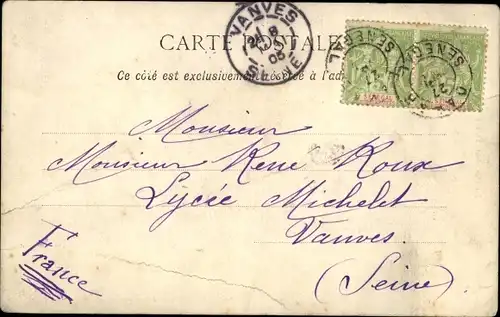 CARTE POSTALE
Ce côté est exclusivement réservé à l'ad
VANVES
8
05
SEINE
SENEGAL
SENEGAL
Monsieur
Monsieur Rene Roux
Lycée Michelet
Vanves.
(Seine)
France